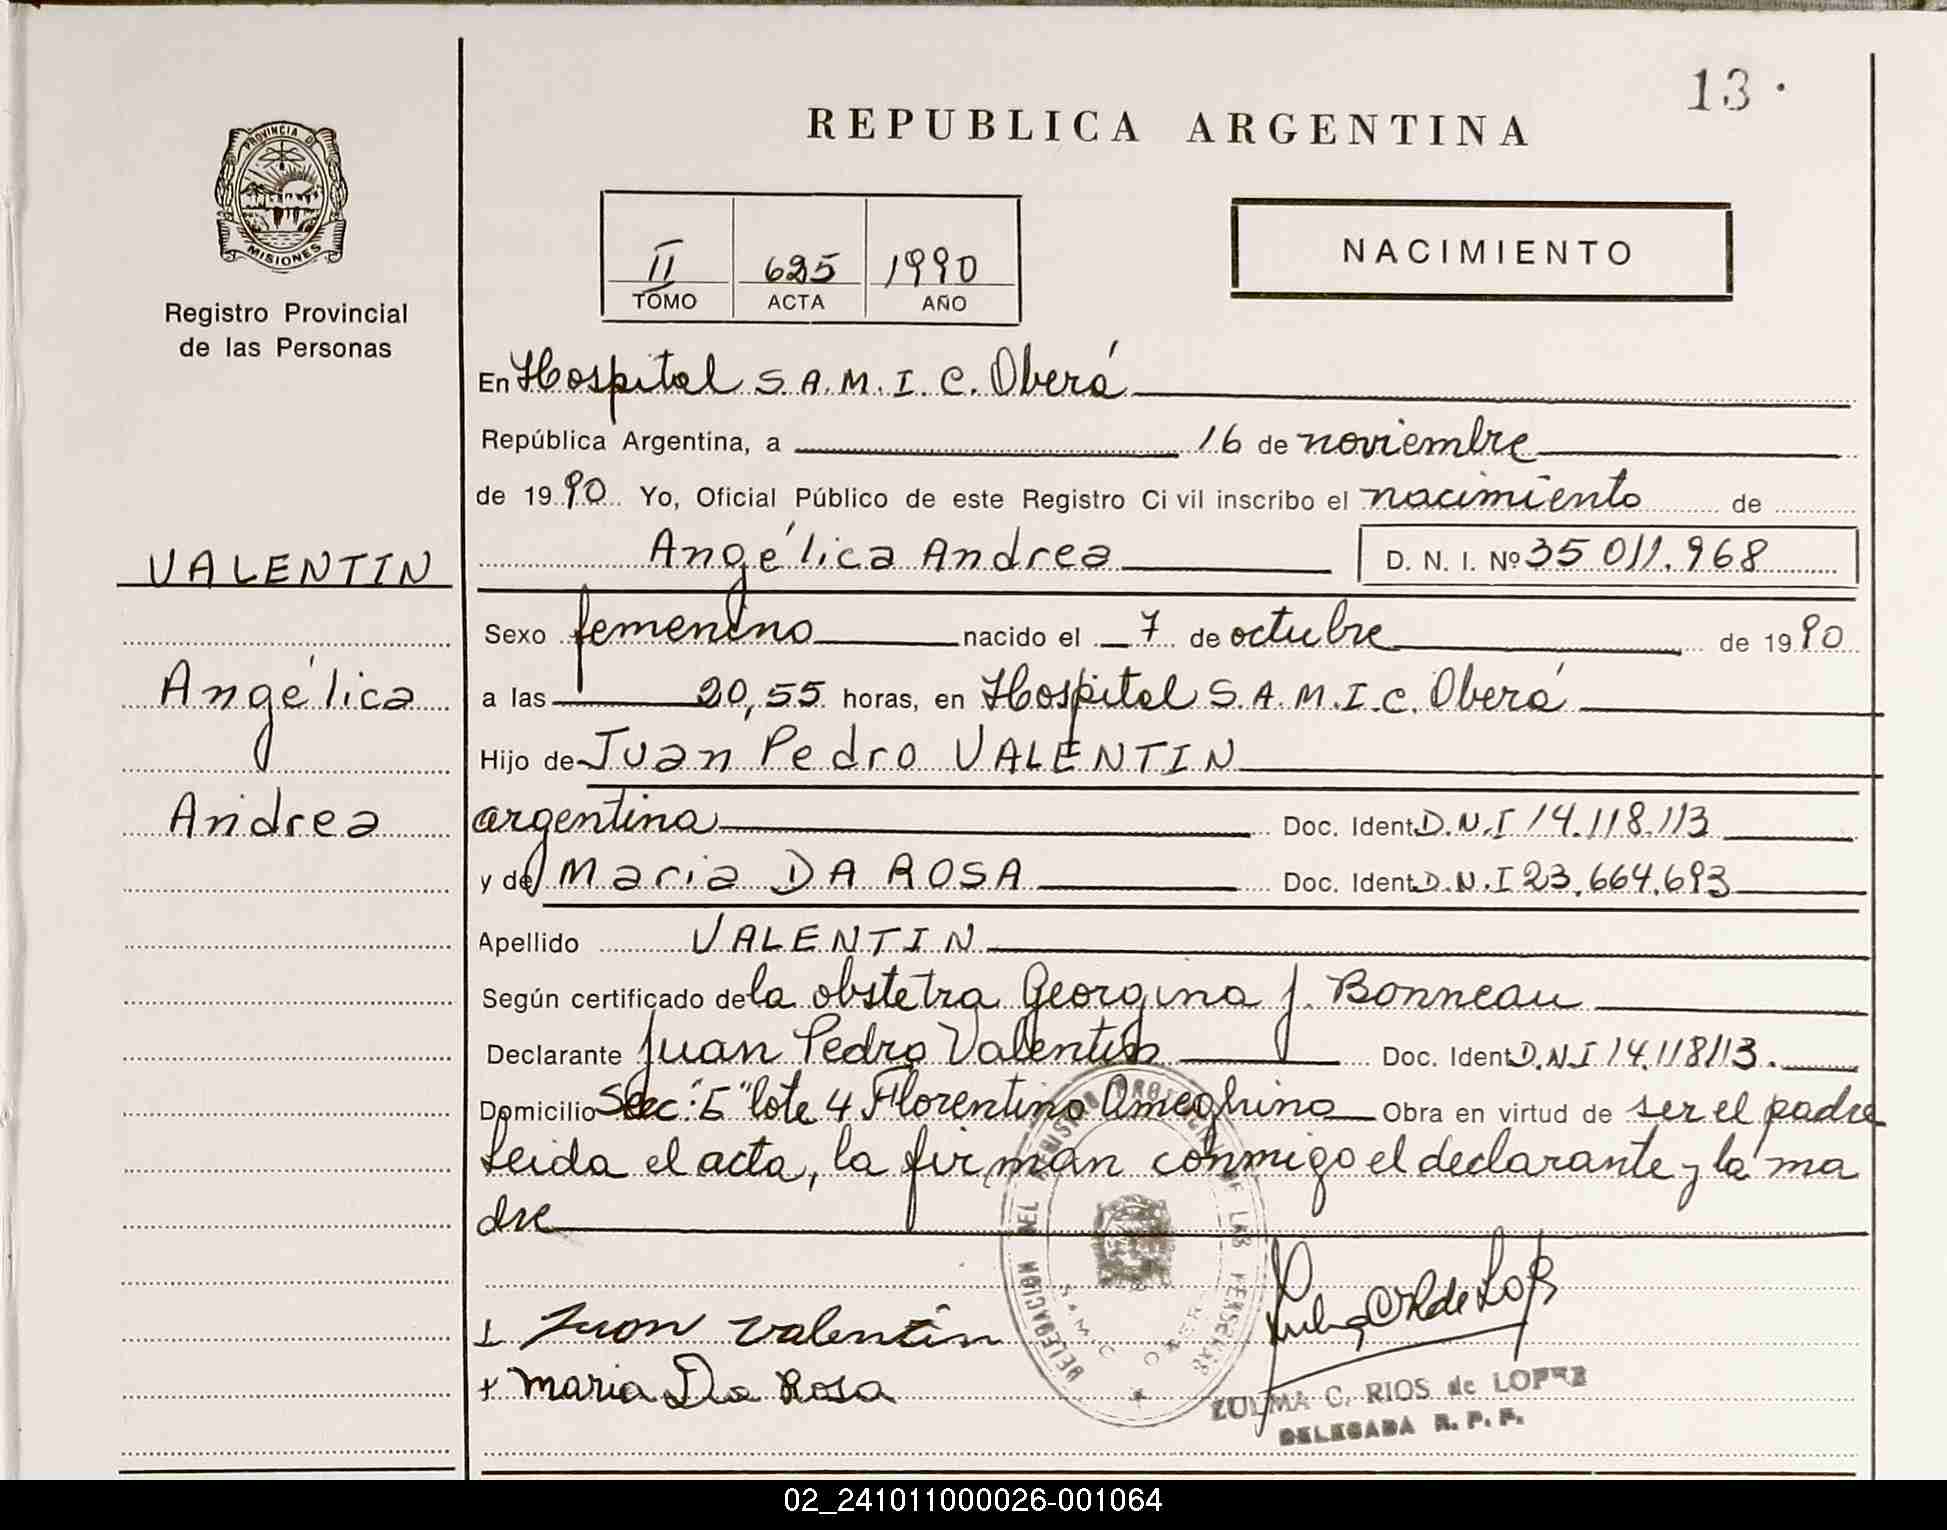 13.
REPUBLICA ARGENTINA
PROVINCIA DE
MISIONES
Registro Provincial
de las Personas
II 625 1990
TOMO ACTA AÑO
NACIMIENTO
En Hospital S.A.M.I.C. Oberá
República Argentina, a 16 de noviembre
de 1990 Yo, Oficial Público de este Registro Ci vil inscribo el nacimiento de
VALENTIN
Angélica Andrea D. N. I. Nº 35 011.968
Sexo femenino nacido el 7 de octubre de 1990
Angélica
a las 20,55 horas, en Hospital S.A.M.I.C. Oberá
Hijo de Juan Pedro VALENTIN
Andrea
argentina Doc. Ident. D.N.I 14.118.113
y de Maria DA ROSA Doc. Ident. D.N.I 23.664.693
Apellido VALENTIN
Según certificado de la obstetra Georgina J. Bonneau
Declarante Juan Pedro Valentin Doc. Ident. D.N.I 14.118113.
Domicilio Secc: "E" lote 4 Florentino Ameghino Obra en virtud de ser el padre
Leida el acta, la firman conmigo el declarante y la ma
dre
DELEGACION DEL REGISTRO PROVINCIAL DE LAS PERSONAS
S.A.M.I.C. OBERA
Juan Valentin
+ Maria Da Rosa
ZULMA C. RIOS de LOPEZ
DELEGADA R. P. P.
02_241011000026-001064